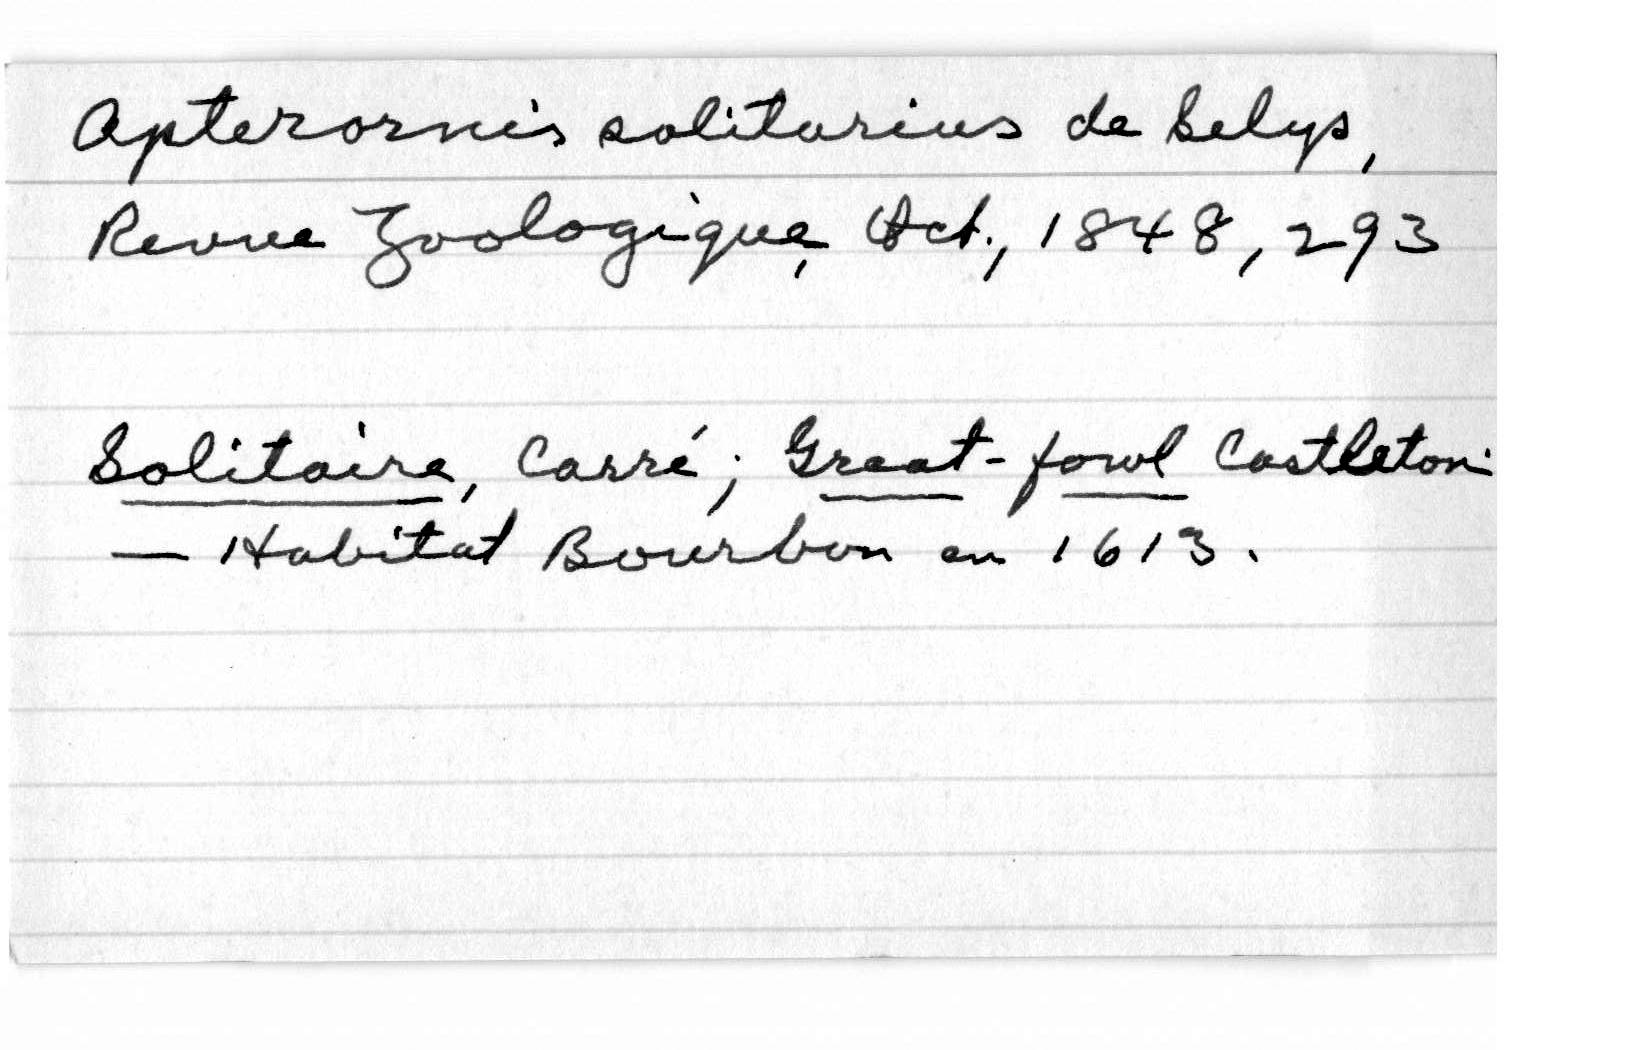 Apterornis solitarius de Selys,
Revue Zoologique, Oct., 1848, 293
Solitaire, Carré; Great-fowl Castleton
— Habitat Bourbon en 1613.